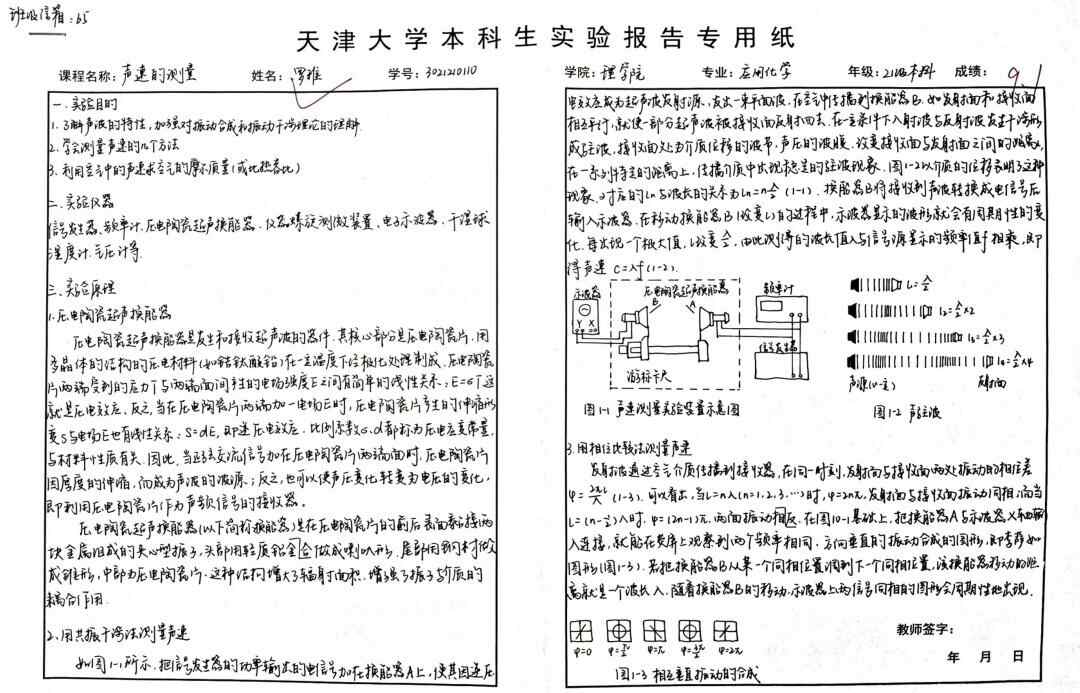 班级信箱:65
天津大学本科生实验报告专用纸
课程名称:声速的测量 姓名:罗雅 学号:3021210110
一.实验目的
1.了解声波的特性,加强对振动合成和振动干涉理论的理解.
2.学会测量声速的几个方法
3.利用空气中的声速求空气的摩尔质量(或比热容比)
二.实验仪器
信号发生器、频率计、压电陶瓷超声换能器、仪器螺旋测微装置、电子示波器、干湿球
温度计、气压计等.
三.实验原理
1.压电陶瓷超声换能器
压电陶瓷超声换能器是发生和接收超声波的器件.其核心部分是压电陶瓷片,用
多晶体的结构的压电材料(如锆钛酸铅)在一定温度下经极化处理制成.压电陶瓷
片两端受到的应力T与两端面间产生的电场强度E之间有简单的线性关系:E=σT,这
就是压电效应.反之,当在压电陶瓷片两端加一电场E时,压电陶瓷片产生的伸缩形
变S与电场E也有线性关系:S=dE,即逆压电效应.比例系数σ、d都称为压电应变常量,
与材料性质有关.因此,当正弦交流信号加在压电陶瓷片两端面时,压电陶瓷片
因厚度的伸缩,而成为声波的波源;反之,也可以使声压变化转变为电压的变化,
即利用压电陶瓷片作为声频信号的接收器.
压电陶瓷超声换能器(以下简称换能器)是在压电陶瓷片的前后表面黏接两
块金属组成的夹心型振子,头部用轻质铝合金做成喇叭形,尾部用钢材做
成锥形,中部为压电陶瓷片.这种结构增大了辐射面积,增强了振子与介质的
耦合作用.
2.用共振干涉法测量声速
如图1-1所示,把信号发生器的功率输出的电信号加在换能器A上,使其因逆压
学院:理学院 专业:应用化学 年级:21级本科 成绩:91
电效应成为超声波发射源,发出一束平面波,在空气中传播到换能器B.如发射面和接收面
相互平行,就使一部分超声波被接收面反射回去.在一定条件下入射波与反射波发生干涉形
成驻波,接收面处为介质位移的波节,声压的波腹.改变接收面与发射面之间的距离L,
在一系列特定的距离上,传播介质中出现稳定的驻波现象.图1-2以介质的位移表明了这种
现象.对应的Ln与波长的关系为Ln=nλ/2 (1-1).换能器B将接收到声波转换成电信号后
输入示波器.在移动换能器B(改变L)的过程中,示波器显示的波形就会有周期性的变
化.每出现一个极大值,L改变λ/2,由此测得的波长值λ与信号源显示的频率值f相乘,即
得声速 C=λf(1-2).
示波器 压电陶瓷超声换能器 频率计
B A
Y X
信号发生器
游标卡尺
图1-1 声速测量实验装置示意图
L=λ/2
L2=λ/2×2
L3=λ/2×3
L4=λ/2×4
反射面
图1-2 声驻波
3.用相位比较法测量声速
发射波通过空气介质传播到接收器,在同一时刻,发射面与接收面两处振动的相位差
φ=2πL/λ (1-3).可以看出,当L=nλ(n=1,2,3,…)时,φ=2nπ,发射面与接收面振动同相;而当
L=(n-½)λ时,φ=(2n-1)π,两面振动相反.在图10-1基础上,把换能器A与示波器X轴输
入连接,就能在荧屏上观察到两个频率相同、方向垂直的振动合成的图形,即李萨如
图形(图1-3).若把换能器B从某一个同相位置调到下一个同相位置,该换能器移动的距
离就是一个波长λ.随着换能器B的移动,示波器上两信号同相的图形会周期性地出现.
φ=0 φ=π/2 φ=π φ=3π/2 φ=2π
图1-3 相互垂直振动的合成
教师签字:
年 月 日